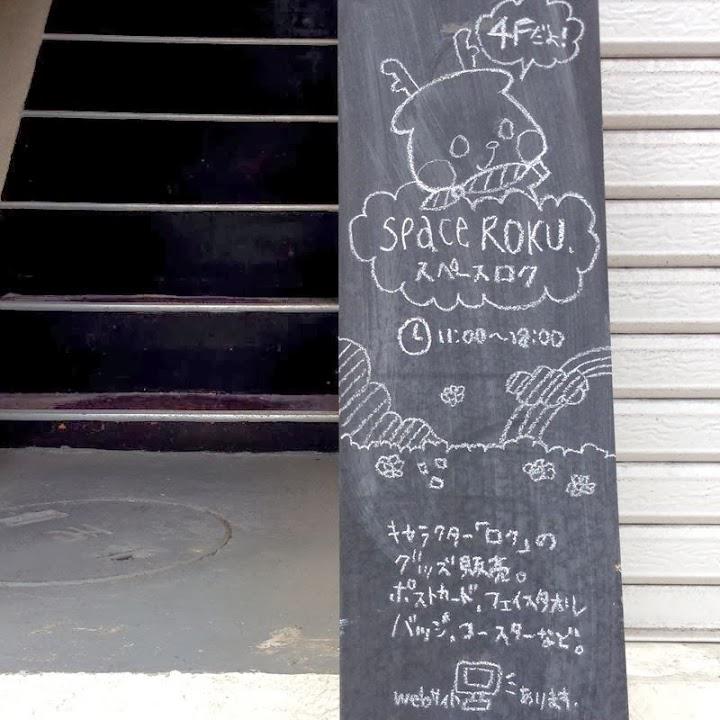 4Fだよ!
SPace ROKU.
スペースロク
11:00〜18:00
キャラクター「ロク」の
グッズ販売。
ポストカード、フェイスタオル
バッジ、コースターなど。
webサイト あります.